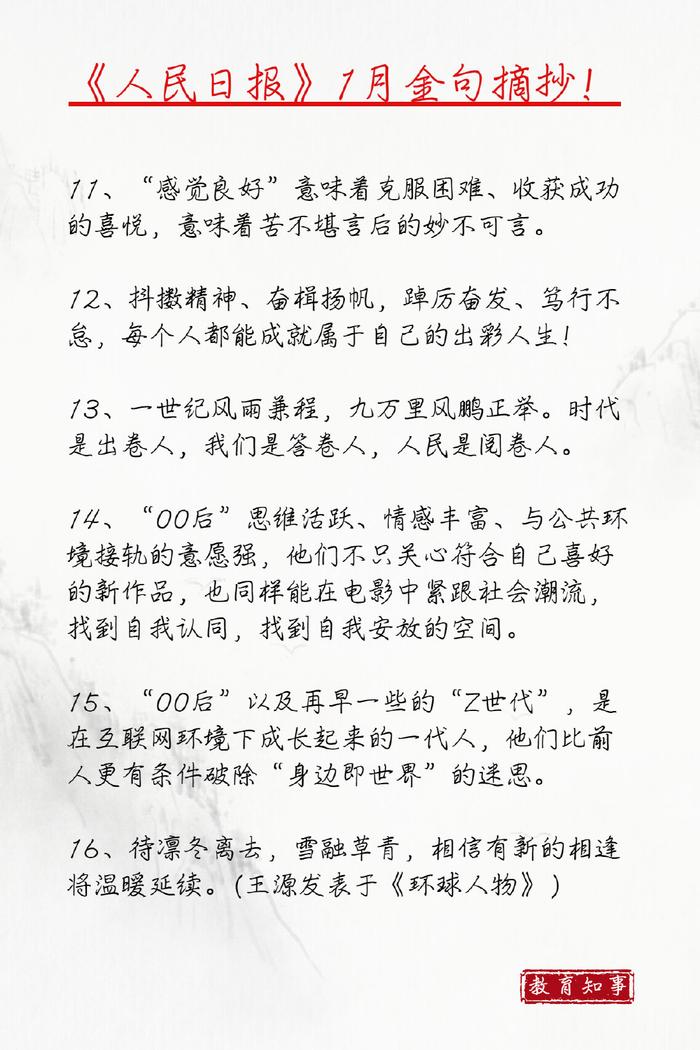 《人民日报》1月金句摘抄！
11、“感觉良好”意味着克服困难、收获成功
的喜悦，意味着苦不堪言后的妙不可言。
12、抖擞精神、奋楫扬帆，踔厉奋发、笃行不
怠，每个人都能成就属于自己的出彩人生！
13、一世纪风雨兼程，九万里风鹏正举。时代
是出卷人，我们是答卷人，人民是阅卷人。
14、“00后”思维活跃、情感丰富、与公共环
境接轨的意愿强，他们不只关心符合自己喜好
的新作品，也同样能在电影中紧跟社会潮流，
找到自我认同，找到自我安放的空间。
15、“00后”以及再早一些的“Z世代”，是
在互联网环境下成长起来的一代人，他们比前
人更有条件破除“身边即世界”的迷思。
16、待凛冬离去，雪融草青，相信有新的相逢
将温暖延续。(王源发表于《环球人物》)
教育知事